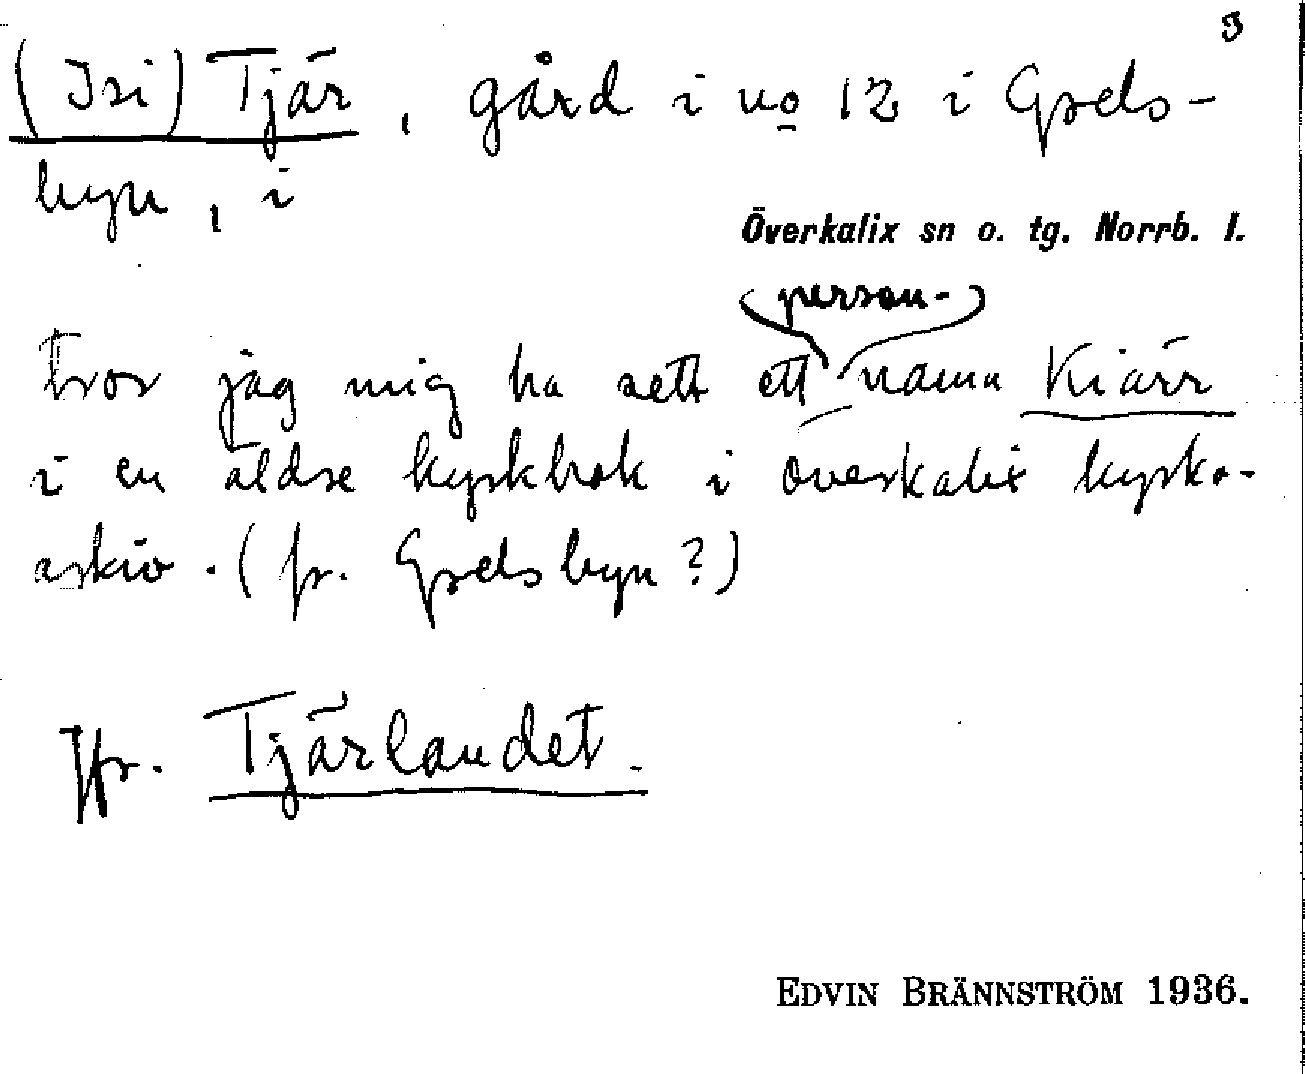 3
(Isi) Tjär, gård i no 12 i Grels-
byn, i
Överkalix sn o. tg. Norrb. l.
person-
Tror jag mig ha sett ett namn Kiärr
i en äldre kyrkbok i Överkalix kyrko-
arkiv. (fr. Grelsbyn?)
Jfr. Tjärlandet.
EDVIN BRÄNNSTRÖM 1936.